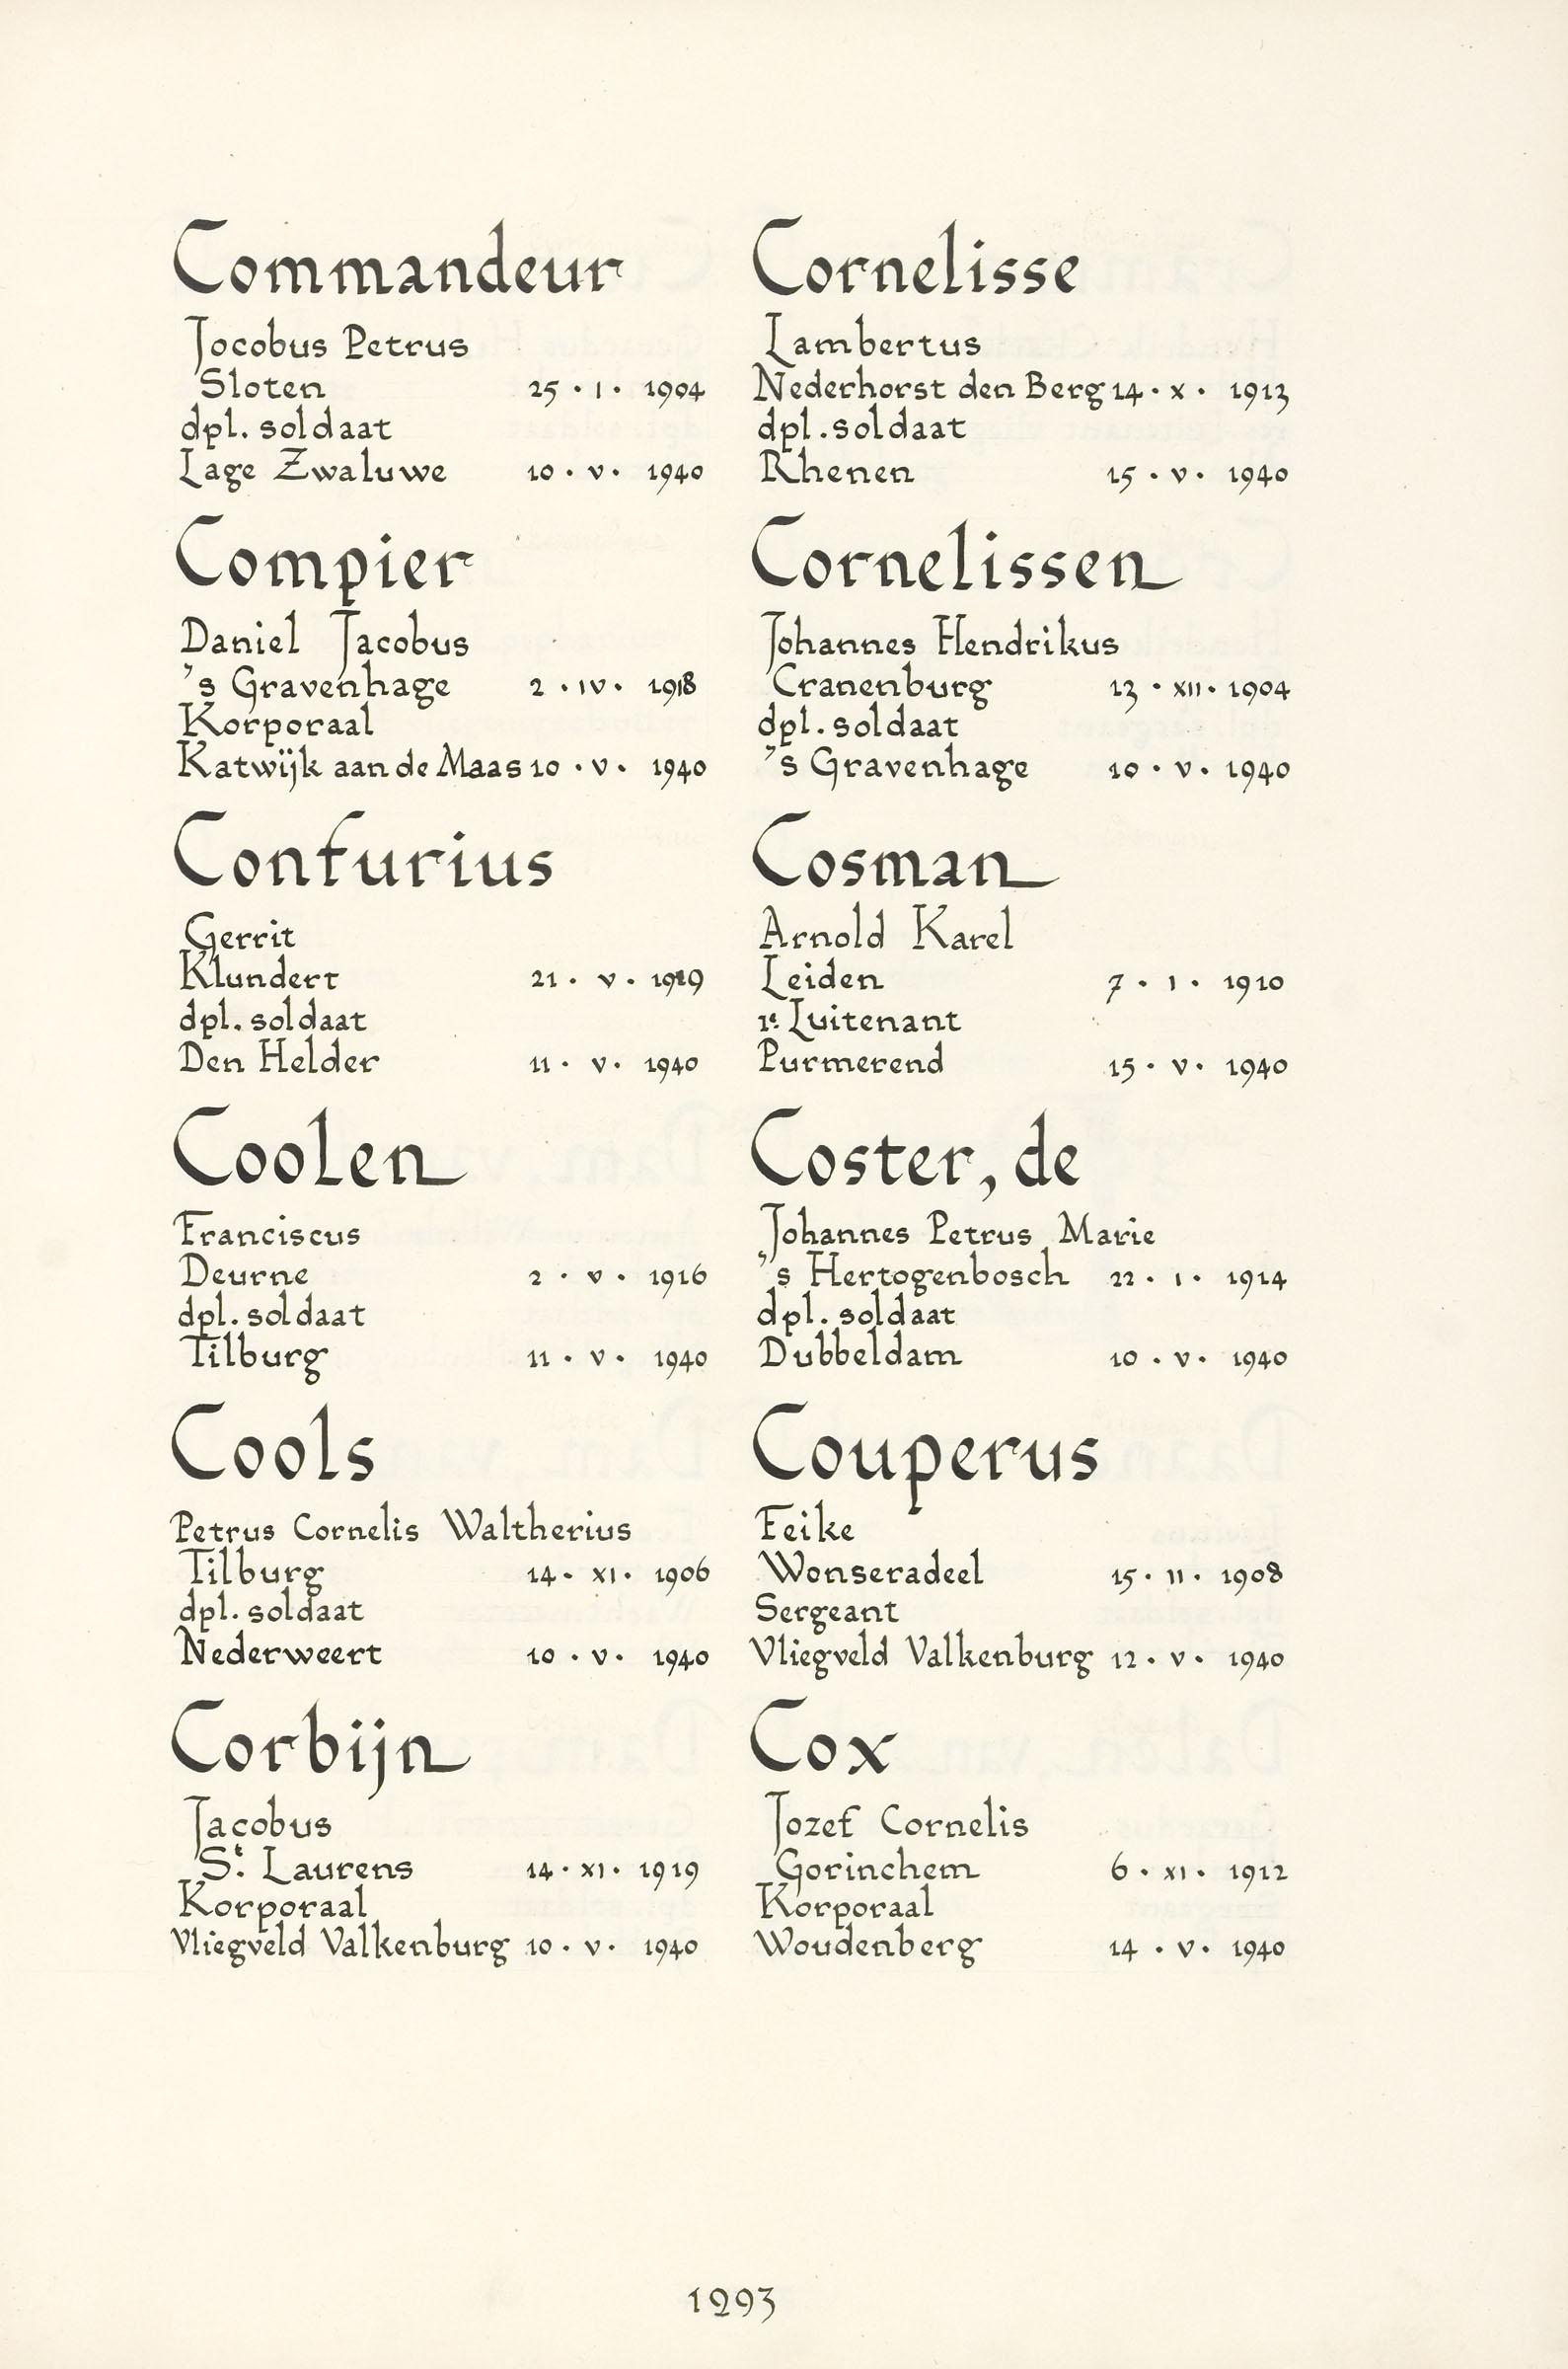 Commandeur
Jocobus Petrus
Sloten 25 · I · 1904
dpl. soldaat
Lage Zwaluwe 10 · V · 1940
Compier
Daniel Jacobus
's Gravenhage 2 · IV · 1918
Korporaal
Katwijk aan de Maas 10 · V · 1940
Confurius
Gerrit
Klundert 21 · V ·
dpl. soldaat
Den Helder 11 · V · 1940
Coolen
Franciscus
Deurne 2 · V · 1916
dpl. soldaat
Tilburg 11 · V · 1940
Cools
Petrus Cornelis Waltherius
Tilburg 14 · XI · 1906
dpl. soldaat
Nederweert 10 · V · 1940
Corbijn
Jacobus
St. Laurens 14 · XI · 1919
Korporaal
Vliegveld Valkenburg 10 · V · 1940
Cornelisse
Lambertus
Nederhorst den Berg 14 · X · 1913
dpl. soldaat
Rhenen 15 · V · 1940
Cornelissen
Johannes Hendrikus
Cranenburg 13 · XII · 1904
dpl. soldaat
's Gravenhage 10 · V · 1940
Cosman
Arnold Karel
Leiden 7 · I · 1910
1e Luitenant
Purmerend 15 · V · 1940
Coster, de
Johannes Petrus Marie
's Hertogenbosch 22 · I · 1914
dpl. soldaat
Dubbeldam 10 · V · 1940
Couperus
Feike
Wonseradeel 15 · II · 1908
Sergeant
Vliegveld Valkenburg 12 · V · 1940
Cox
Jozef Cornelis
Gorinchem 6 · XI · 1912
Korporaal
Woudenberg 14 · V · 1940
1293